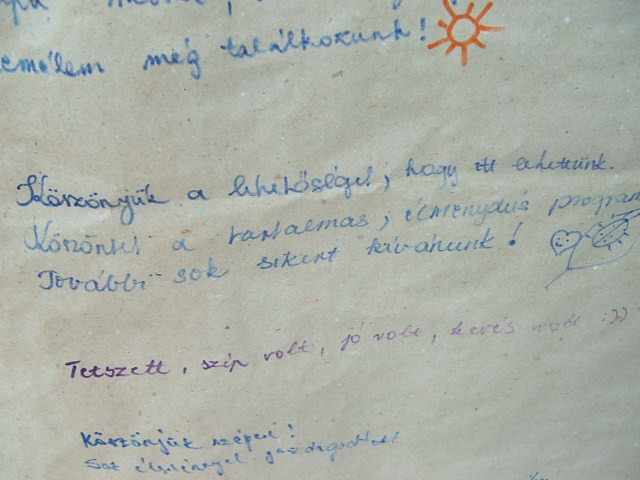 emélem még találkozunk!
Köszönjük a lehetőséget, hogy itt lehettünk.
Köszönet a tartalmas, élménydús program
További sok sikert kívánunk!
Tetszett, szép volt, jó volt, kevés volt :))
Köszönjük szépen!
Sok élménnyel gazdagodtunk